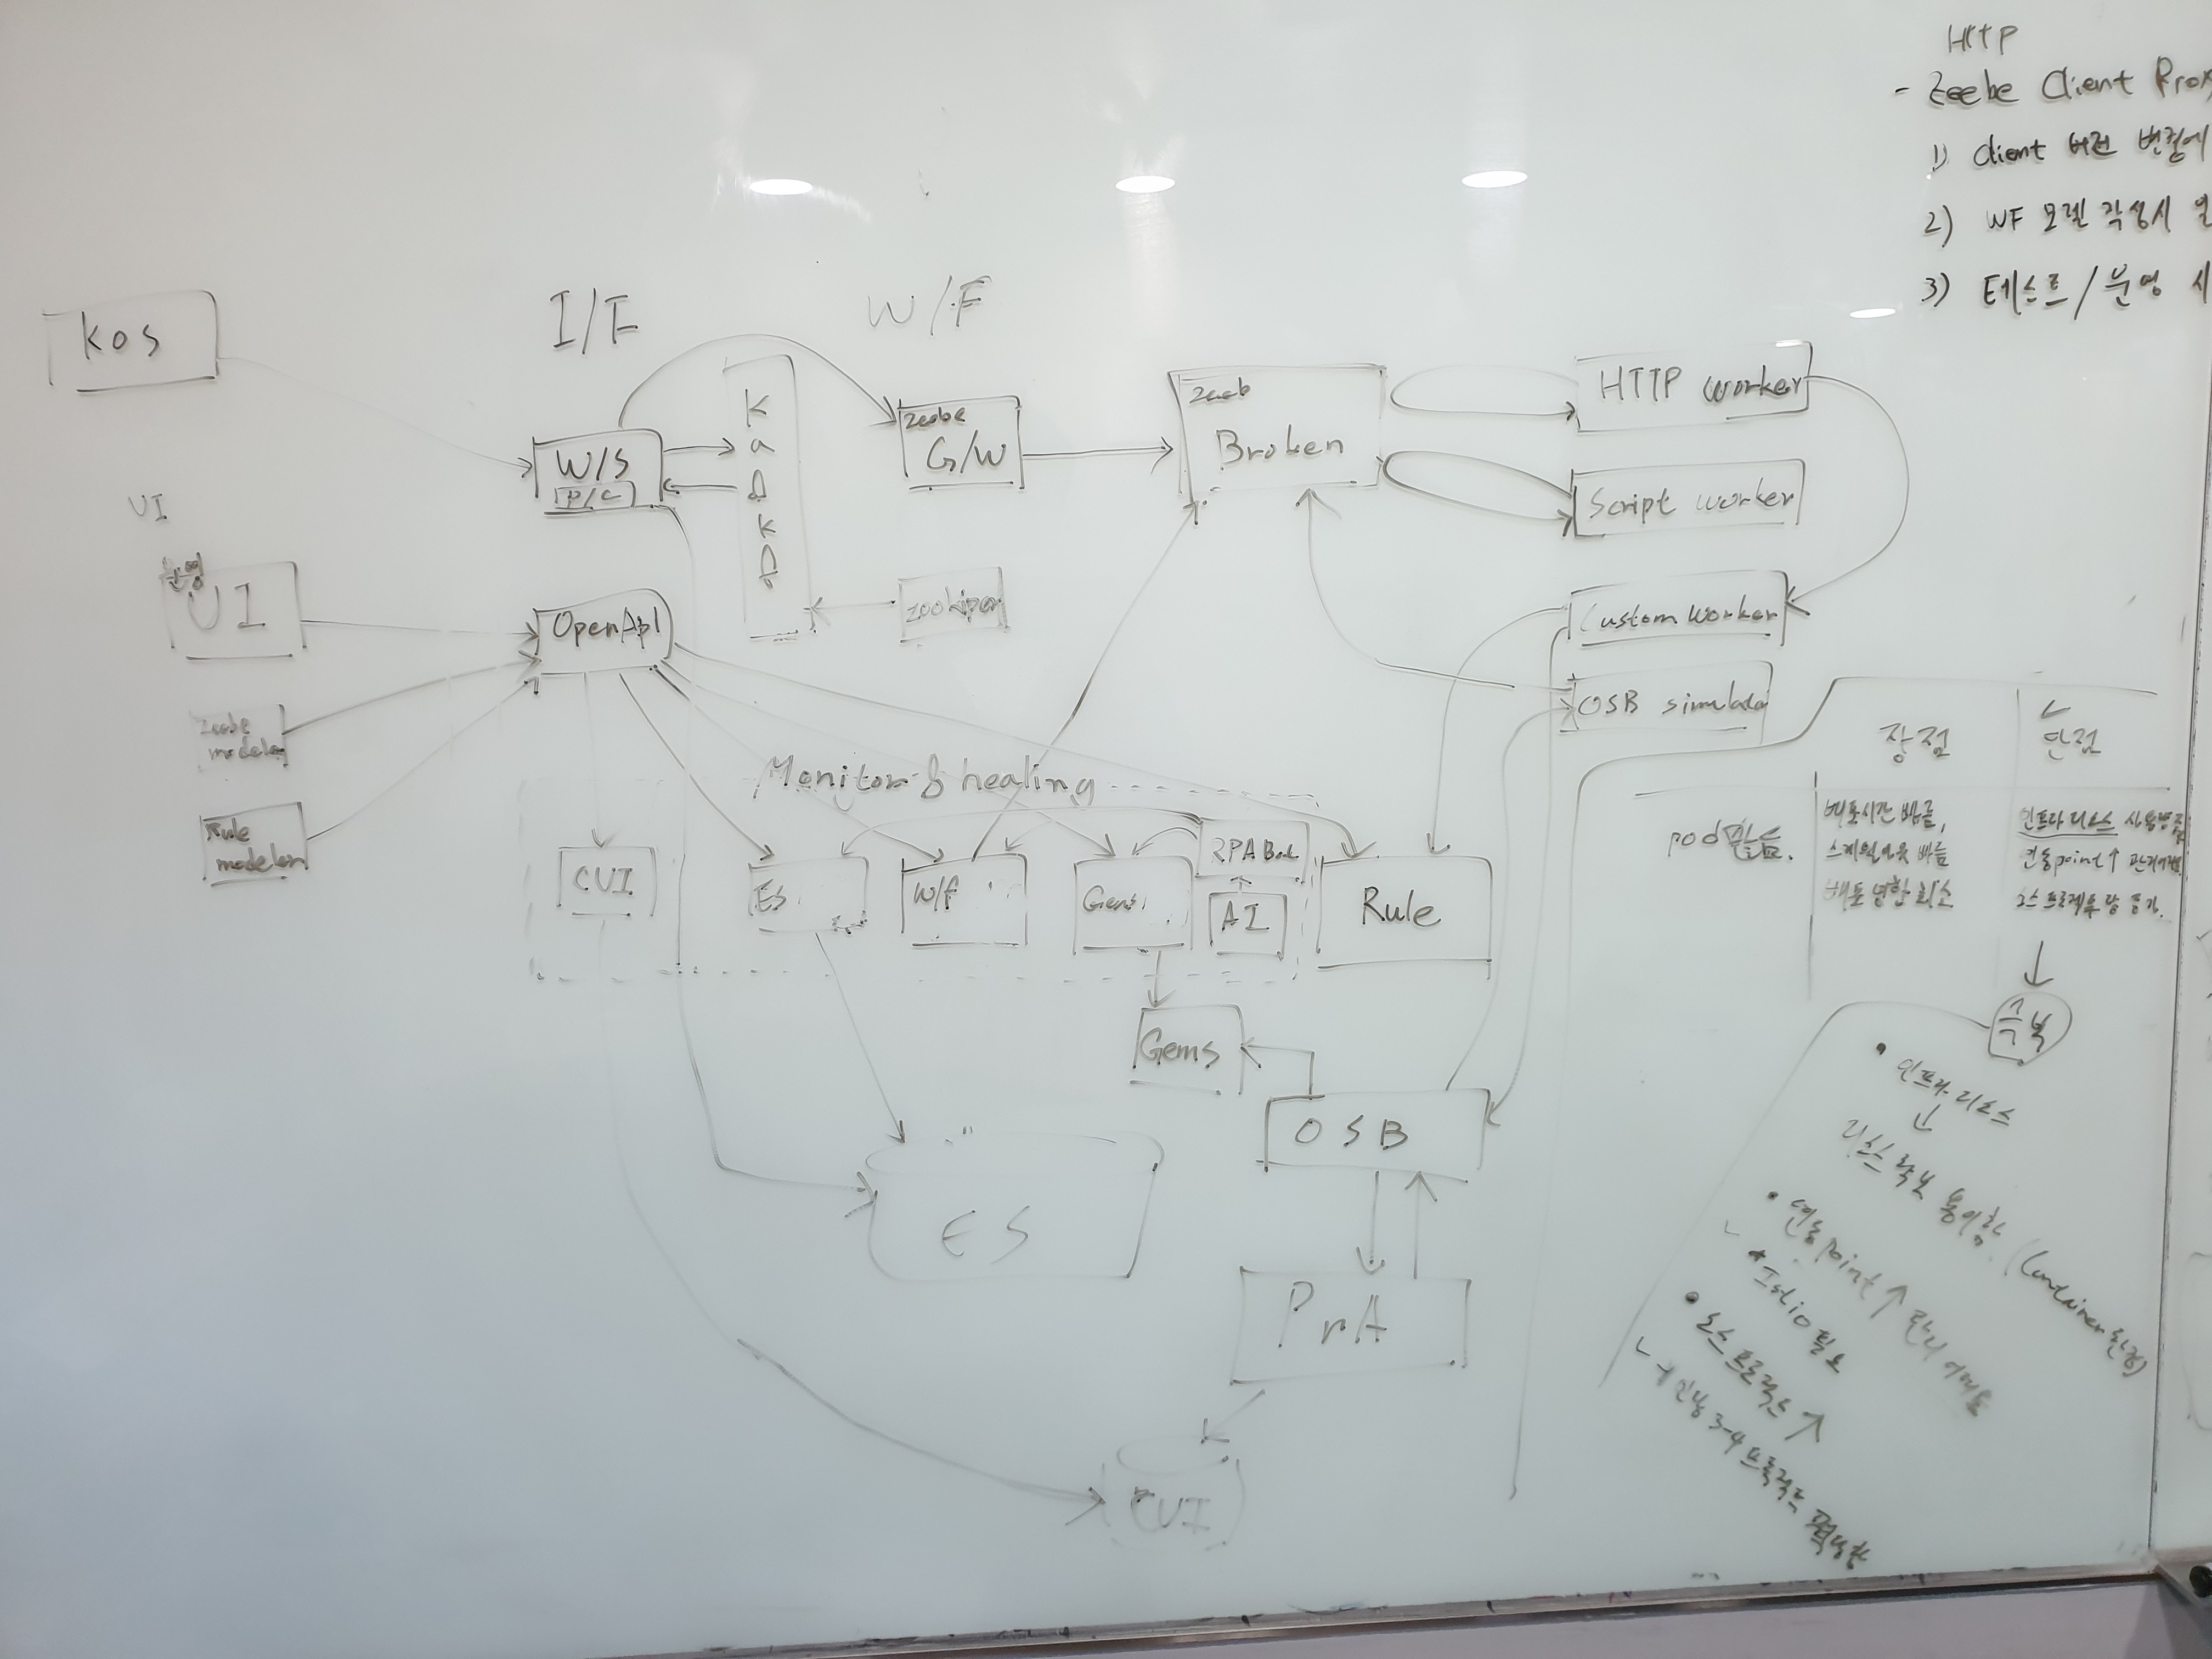 HTTP
- Zeebe Client Prox
1) Client 버전 변경에
2) WF 모델 작성시
3) 테스트/운영 시
I/F
W/F
KOS
W/S
P/C
Kafka
zeebe
G/W
zeeb
Broken
HTTP worker
Script worker
Custom Worker
OSB simulato
zookiper
UI
UI
OpenApI
zeebe
modeler
Rule
modeler
Monitor & healing
CUI
ES
W/F
Gems
RPA Bot
AI
Rule
Gems
OSB
ES
PrA
CUI
장점
단점
pod
배포시간 빠름,
스케일아웃 빠름
배포 영향 최소
인프라 리소스
연동point↑ 관리어려움
증가.
극복
• 인프라 리소스
↓
리소스 확보 용이함. (Container 환경)
• 연동point↑ 관리 어려움
* Istio 필요
• 소스 프로젝트 ↑
인당 3-4 프로젝트